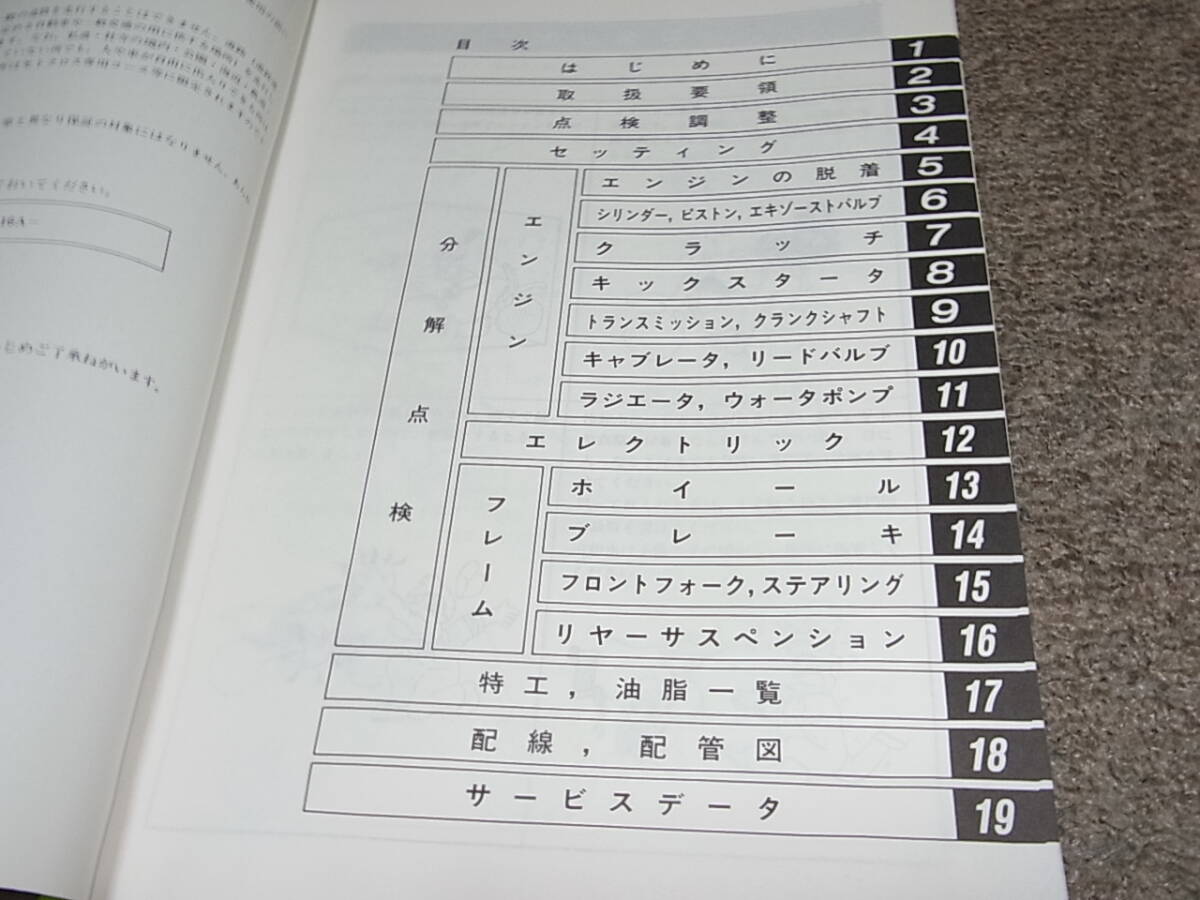 ておいてください。
じめご了承ねがいます。
目次
はじめに 1
取扱要領 2
点検調整 3
セッティング 4
分解点検
エンジン
エンジンの脱着 5
シリンダー, ピストン, エキゾーストバルブ 6
クラッチ 7
キックスタータ 8
トランスミッション, クランクシャフト 9
キャブレータ, リードバルブ 10
ラジエータ, ウォータポンプ 11
エレクトリック 12
フレーム
ホイール 13
ブレーキ 14
フロントフォーク, ステアリング 15
リヤーサスペンション 16
特工, 油脂一覧 17
配線, 配管図 18
サービスデータ 19